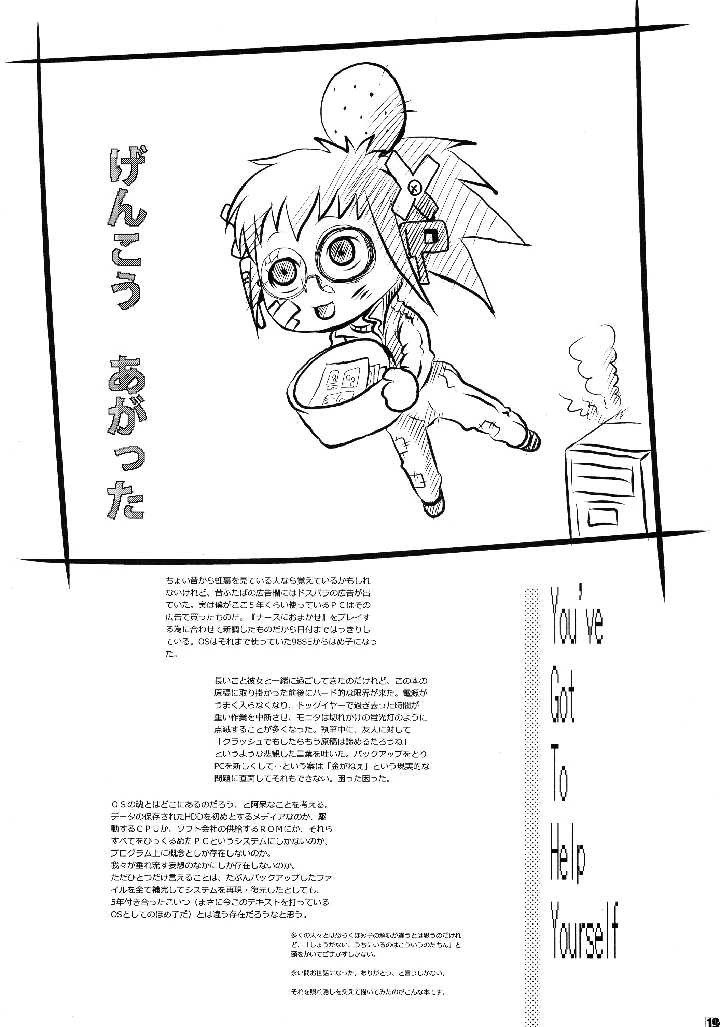 げんこう あがった
ちょい昔から虹裏を見ている人なら覚えているかもしれ
ないけれど、昔ふたばの広告欄にはドスパラの広告が出
ていた。実は僕がここ5年くらい使っているPCはその
広告で買ったものだ。『ナースにおまかせ』をプレイす
る為に合わせて新調したものだから日付まではっきりし
ている。OSはそれまで使っていた98SEからはめ子になっ
た。
長いこと彼女と一緒に過ごしてきたのだけれど、この本の
原稿に取り掛かった前後にハード的な限界が来た。電源が
うまく入らなくなり、ドッグイヤーで過ぎ去った時間が
重い作業を中断させ、モニタは切れかけの蛍光灯のように
点滅することが多くなった。執筆中に、友人に対して
「クラッシュでもしたらもう原稿は諦めるだろうね」
というような悲観した言葉を吐いた。バックアップをとり
PCを新しくして…という案は「金がねぇ」という現実的な
問題に直面してそれもできない。困った困った。
OSの魂とはどこにあるのだろう、と阿呆なことを考える。
データの保存されたHDDを初めとするメディアなのか、駆
動するCPUか、ソフト会社の供給するROMにか、それら
すべてをひっくるめたPCというシステムにしかないのか、
プログラム上に概念としか存在しないのか。
我々が垂れ流す妄想のなかにしか存在しないのか。
ただひとつだけ言えることは、たぶんバックアップしたファ
イルを全て補完してシステムを再現・復元したとしても、
5年付き合ったこいつ(まさに今このテキストを打っている
OSとしてのはめ子だ)とは違う存在だろうなと思う。
ど、「しょうがない、うちにいるのはこういうのだもん」と
頭をかいてごまかすしかない。
長い間お世話になった。ありがとう、と言うしかない。
それを照れ隠しを交えて描いてみたのがこんな本です。
You've
Got
To
Help
Yourself